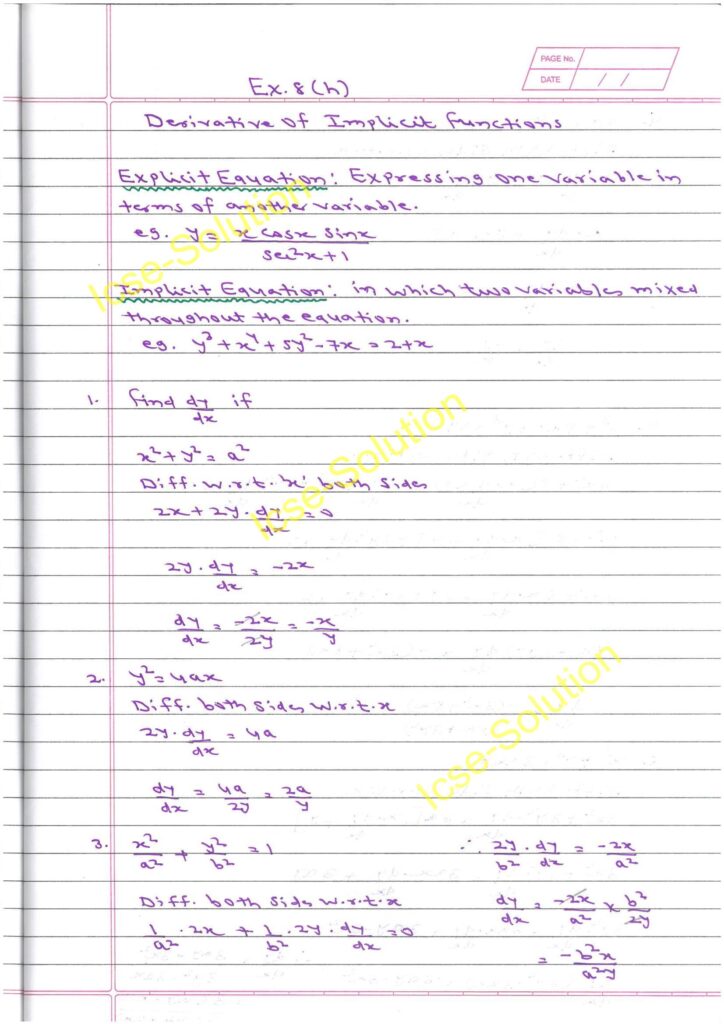 PAGE No.
DATE / /
Ex. 8 (h)
Derivative of Implicit functions
Explicit Equation: Expressing one variable in
terms of another variable.
eg. y = x cosx sinx / sec²x + 1
Implicit Equation: in which two variables mixed
throughout the equation.
eg. y³ + x⁴ + 5y² - 7x = 2 + x
1. find dy/dx if
x² + y² = a²
Diff. w.r.t. 'x' both sides
2x + 2y . dy/dx = 0
2y . dy/dx = -2x
dy/dx = -2x/2y = -x/y
2. y² = 4ax
Diff. both sides w.r.t. x
2y . dy/dx = 4a
dy/dx = 4a/2y = 2a/y
3. x²/a² + y²/b² = 1
Diff. both side w.r.t. x
1/a² . 2x + 1/b² . 2y . dy/dx = 0
∴ 2y/b² . dy/dx = -2x/a²
dy/dx = -2x/a² × b²/2y
= -b²x/a²y
Icse-Solution
Icse-Solution
Icse-Solution